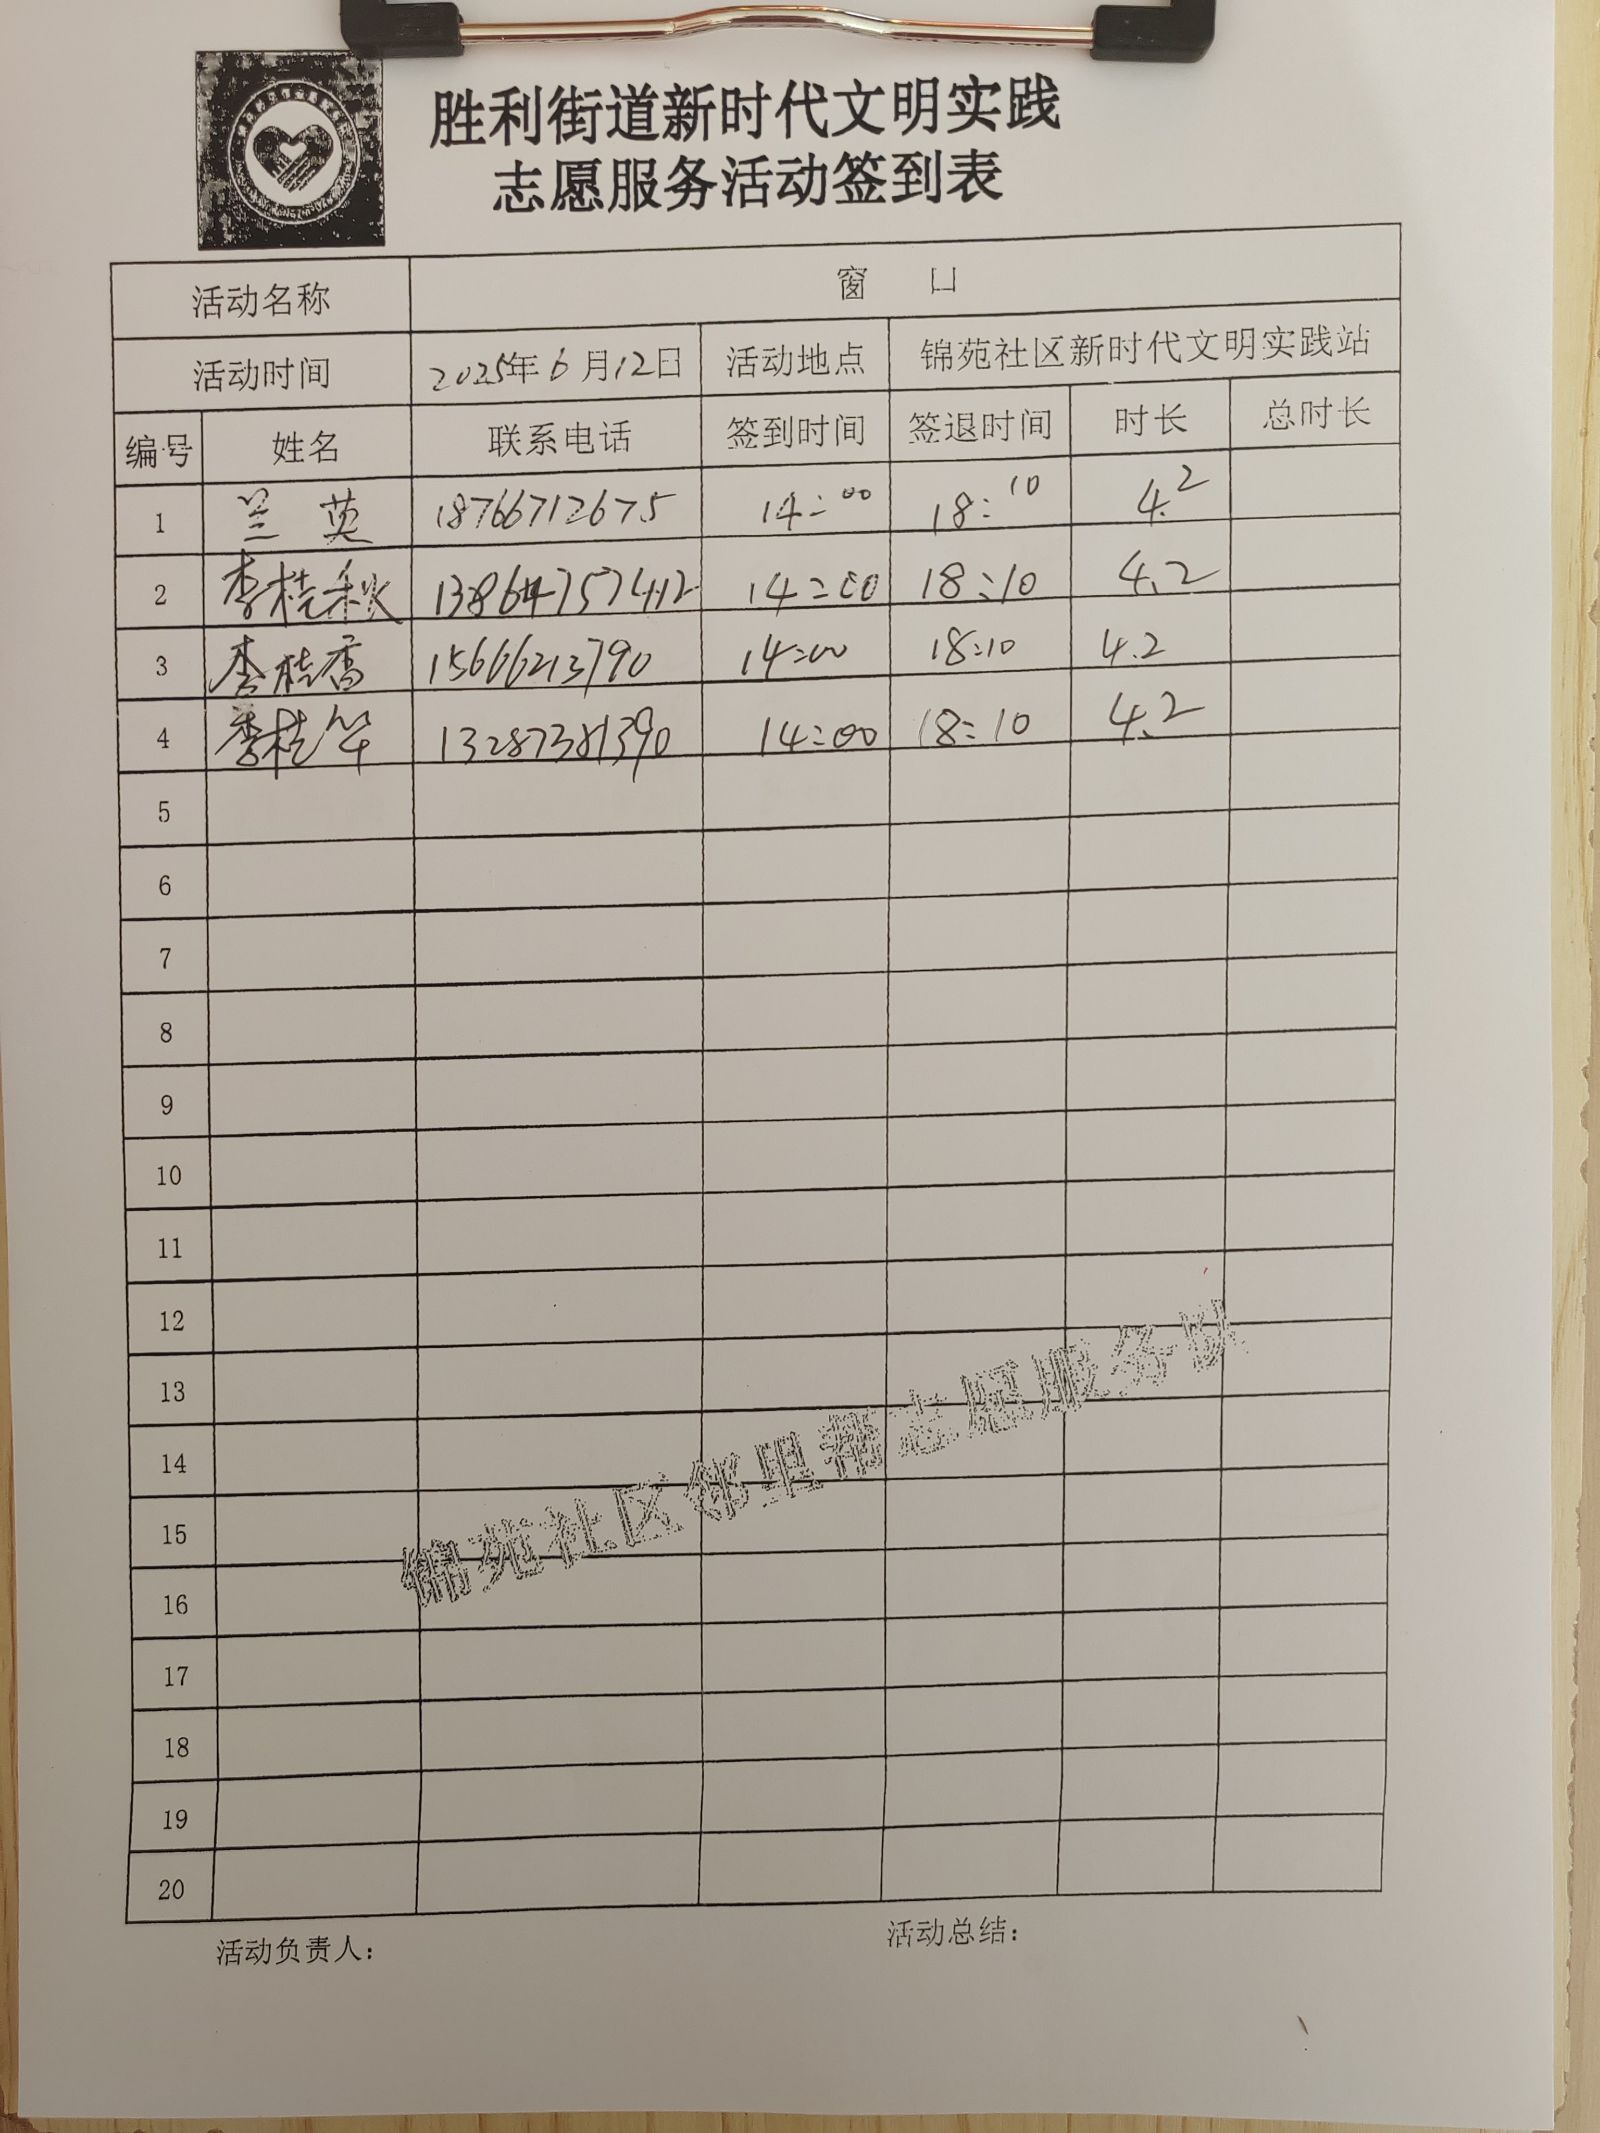 胜利街道新时代文明实践
志愿服务活动签到表
活动名称 窗 口
活动时间 2025年6月12日 活动地点 锦苑社区新时代文明实践站
编号 姓名 联系电话 签到时间 签退时间 时长 总时长
1 兰英 18766712675 14:00 18:10 4.2
2 李桂秋 13864757412 14:00 18:10 4.2
3 李桂香 15666213790 14:00 18:10 4.2
4 李桂华 13287381390 14:00 18:10 4.2
5
6
7
8
9
10
11
12
13
14
15
16
17
18
19
20
锦苑社区邻里帮志愿服务队
活动负责人: 活动总结: